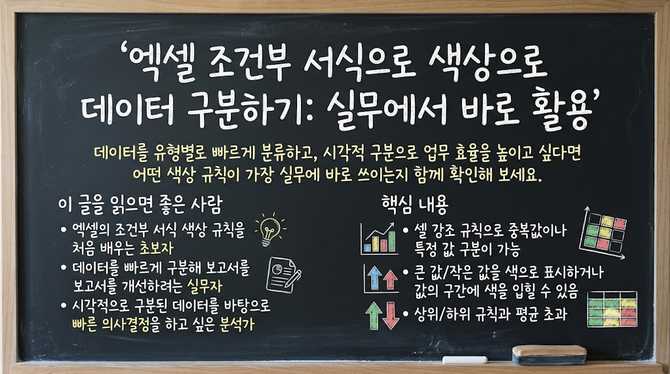 '엑셀 조건부 서식으로 색상으로
데이터 구분하기: 실무에서 바로 활용'
데이터를 유형별로 빠르게 분류하고, 시각적 구분으로 업무 효율을 높이고 싶다면
어떤 색상 규칙이 가장 실무에 바로 쓰이는지 함께 확인해 보세요.
이 글을 읽으면 좋은 사람
• 엑셀의 조건부 서식 색상 규칙을
처음 배우는 초보자
• 데이터를 빠르게 구분해 보고서를
보고서를 개선하려는 실무자
• 시각적으로 구분된 데이터를 바탕으로
빠른 의사결정을 하고 싶은 분석가
핵심 내용
• 셀 강조 규칙으로 중복값이나
특정 값 구분이 가능
• 큰 값/작은 값을 색으로 표시하거나
값의 구간에 색을 입힐 수 있음
• 상위/하위 규칙과 평균 초과